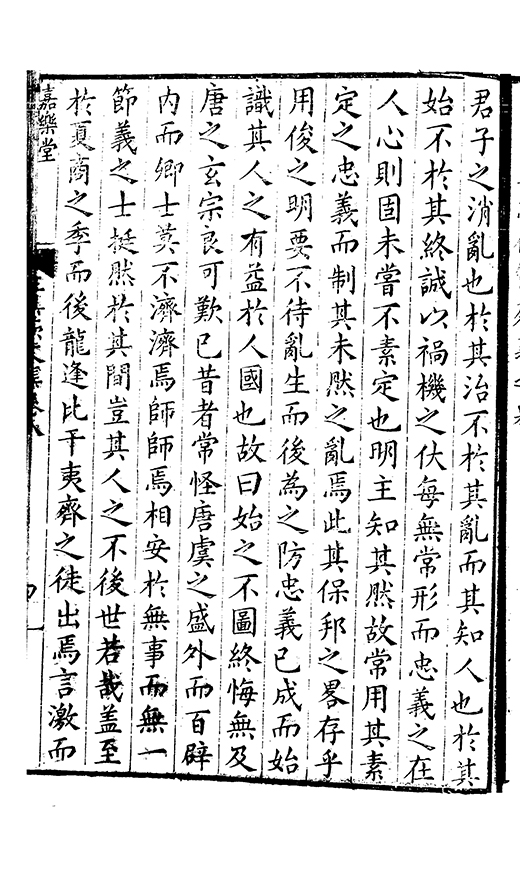 君子之消亂也於其治不於其亂而其知人也於其
始不於其終誠以禍機之伏每無常形而忠義之在
人心則固未嘗不素定也明主知其然故常用其素
定之忠義而制其未然之亂焉此其保邦之畧存乎
用俊之明要不待亂生而後為之防忠義已成而始
識其人之有益於人國也故曰始之不圖終悔無及
唐之玄宗良可歎已昔者常怪唐虞之盛外而百辟
內而卿士莫不濟濟焉師師焉相安於無事而無一
節義之士挺然於其間豈其人之不後世若哉盖至
於夏商之季而後龍逢比干夷齊之徒出焉言激而
嘉樂堂